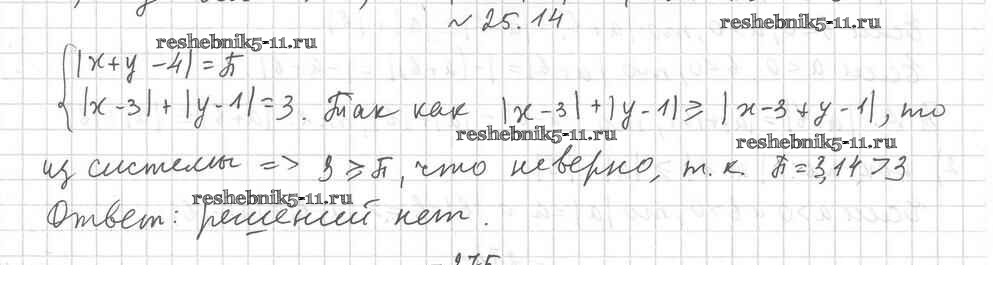 ~ 25.14
reshebnik5-11.ru
reshebnik5-11.ru
|x+y-4|=π
|x-3|+|y-1|=3. Так как |x-3|+|y-1|≥|x-3+y-1|, то
reshebnik5-11.ru
reshebnik5-11.ru
из системы => 3≥π, что неверно, т.к. π=3,14>3
reshebnik5-11.ru
Ответ: решений нет.